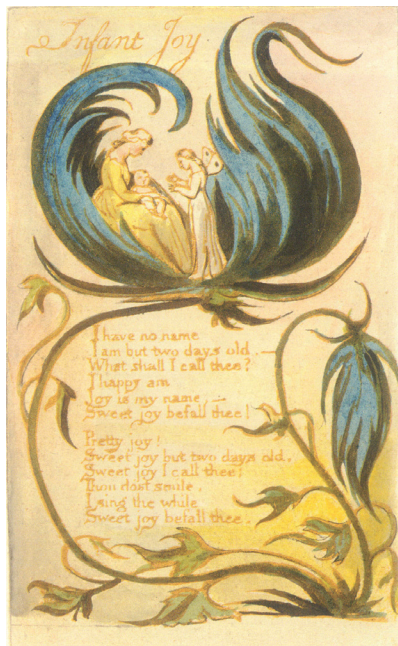 Infant Joy.
I have no name
I am but two days old.
What shall I call thee?
I happy am
Joy is my name,
Sweet joy befall thee!
Pretty joy!
Sweet joy but two days old.
Sweet joy I call thee;
Thou dost smile,
I sing the while
Sweet joy befall thee.